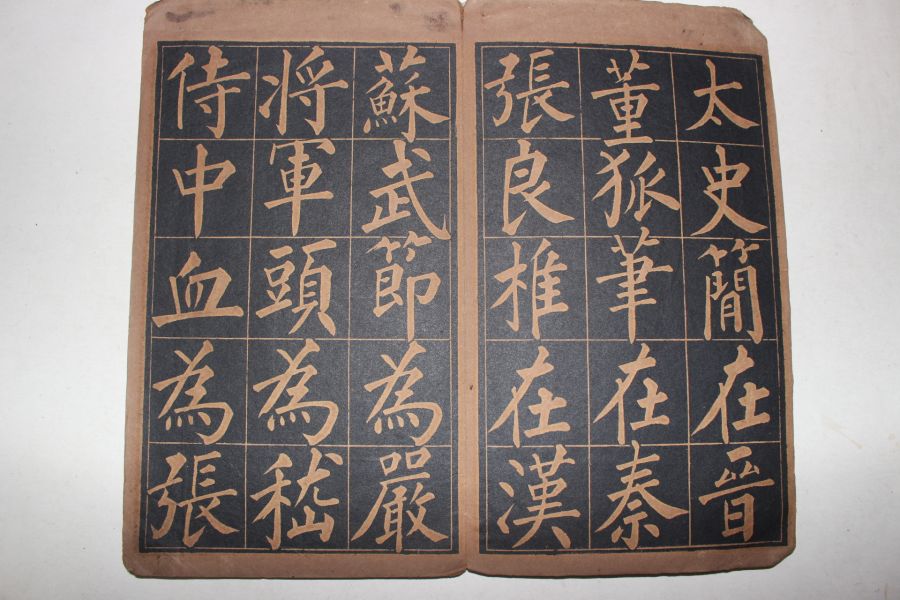 太史簡在晉
董狐筆在秦
張良椎在漢
蘇武節為嚴
将軍頭為嵇
侍中血為張